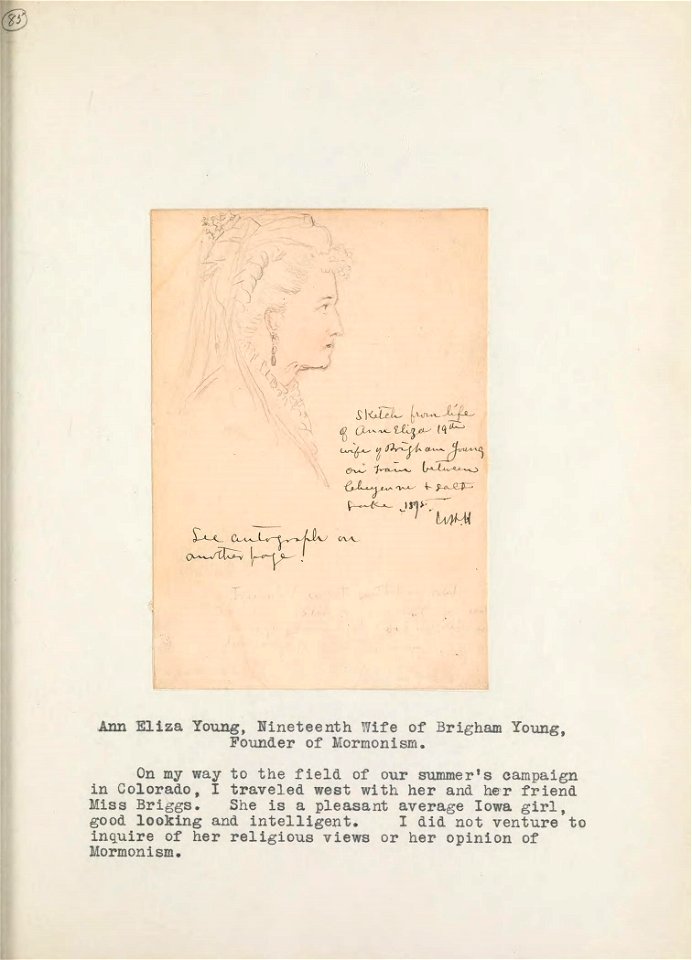 85
Sketch from life
of Ann Eliza 19th
wife of Brigham Young
on train between
Cheyenne & Salt
Lake
WHH
See autograph on
another page.
Ann Eliza Young, Nineteenth Wife of Brigham Young,
Founder of Mormonism.
On my way to the field of our summer's campaign
in Colorado, I traveled west with her and her friend
Miss Briggs. She is a pleasant average Iowa girl,
good looking and intelligent. I did not venture to
inquire of her religious views or her opinion of
Mormonism.